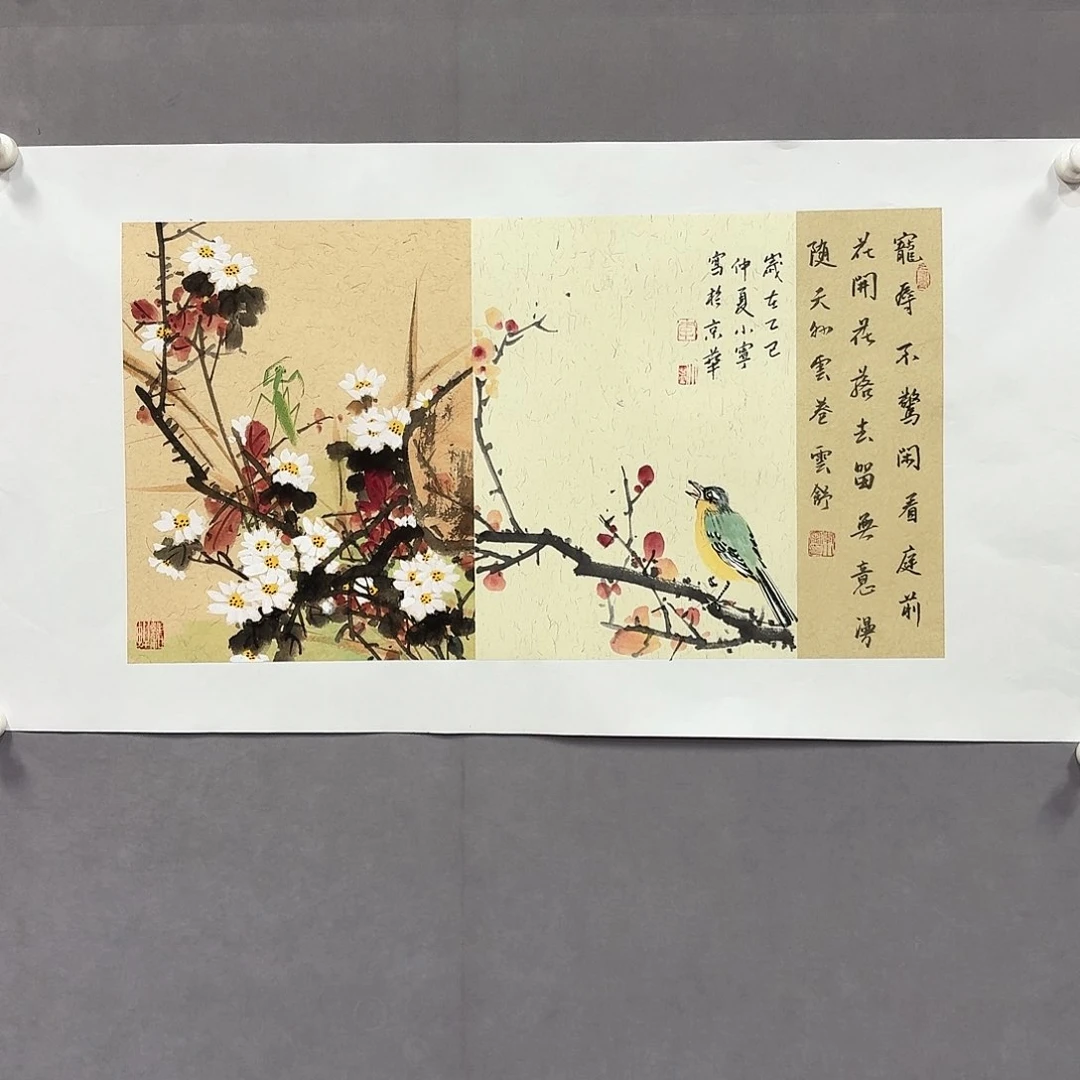 寵辱不驚閑看庭前
花開花落去留無意漫
随天外雲卷雲舒
歲在乙巳
仲夏小寧
寫於京華